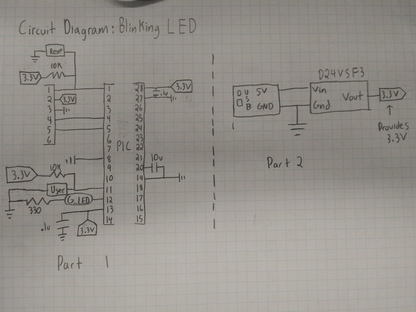 Circuit Diagram: Blinking LED
Reset
10K
3.3V
1
2
3
4
5
6
3.3V
1
2
3
4
5
6
7
8
9
10
11
12
13
14
PIC
28
27
26
25
24
23
22
21
20
19
18
17
16
15
3.3V
.1u
10u
3.3V
10K
User
330
G.LED
.1u
3.3V
Part 1
USB
5V
GND
D24V5F3
Vin
Gnd
Vout
3.3V
Provides
3.3V
Part 2